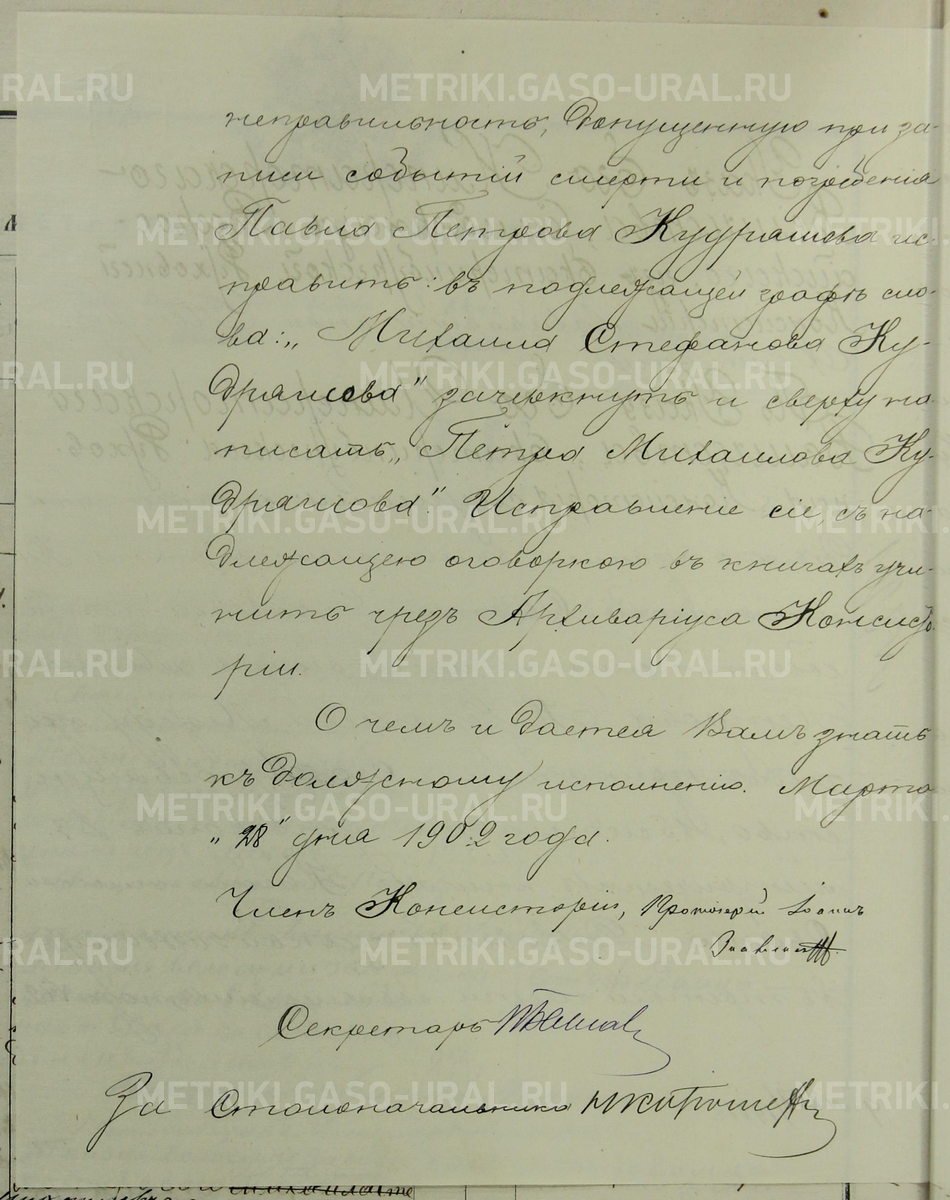 неправильность, допущенную при за-
писи событій смерти и погребенія
Павла Петрова Кудрашова ис-
править: въ подлежащей графѣ сло-
ва: „Михаила Стефанова Ку-
драшова" зачеркнуть и сверху на-
писать „Петра Михаилова Ку-
драшова". Исправленіе сіе, съ над-
длежащею оговоркою въ книгахъ учи-
нить чрезъ Архиваріуса Консисто-
ріи.
О чемъ и дается Вамъ знать
къ должному исполненію. Марта
„28" дня 1902 года.
Членъ Консисторіи, Протоіерей Іоаннъ
Секретарь
За Столоначальника
METRIKI.GASO-URAL.RU